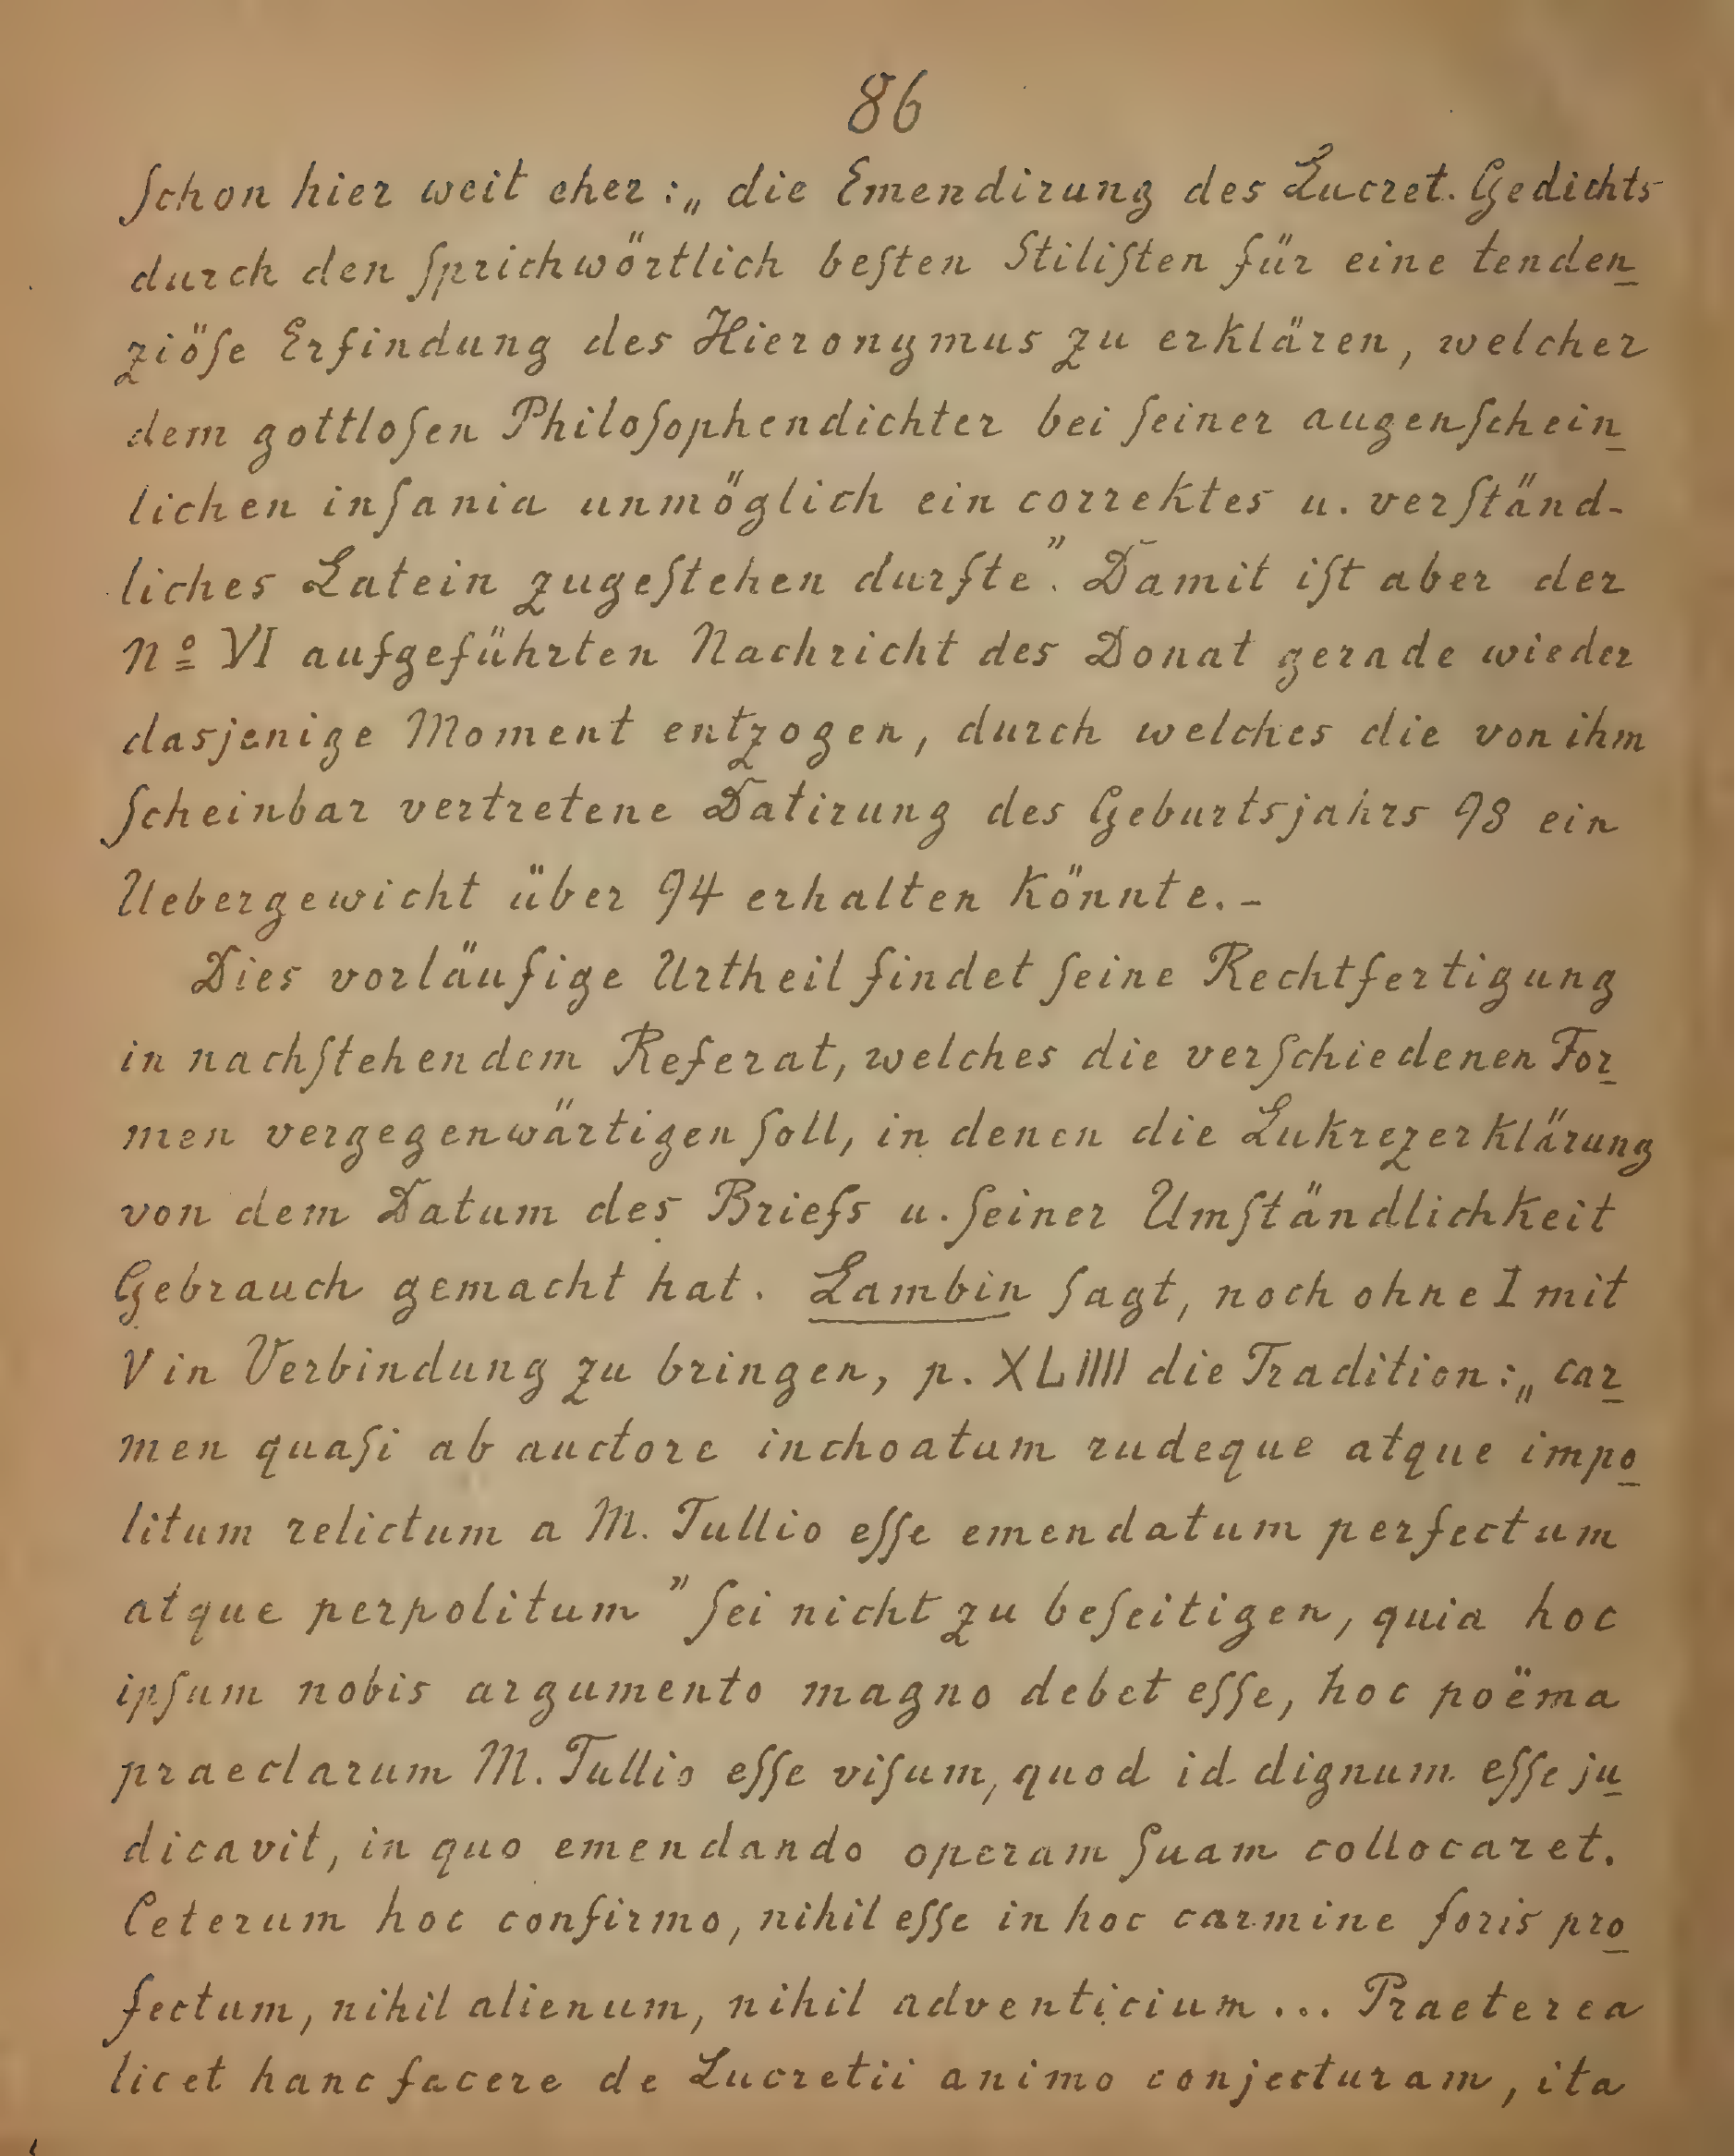 86
ſchon hier weit eher: „die Emendirung des Lucret. Gedichts
durch den ſprichwörtlich beſten Stiliſten für eine tenden
ziöſe Erfindung des Hieronymus zu erklären, welcher
dem gottloſen Philoſophendichter bei ſeiner augenſchein
lichen inſania unmöglich ein correktes u. verſtänd-
liches Latein zugeſtehen durfte”. Damit iſt aber der
Nº VI aufgeführten Nachricht des Donat gerade wieder
dasjenige Moment entzogen, durch welches die von ihm
ſcheinbar vertretene Datirung des Geburtsjahrs 98 ein
Uebergewicht über 94 erhalten könnte. -
Dies vorläufige Urtheil findet ſeine Rechtfertigung
in nachſtehendem Referat, welches die verſchiedenen For
men vergegenwärtigen ſoll, in denen die Lukrezerklärung
von dem Datum des Briefs u. ſeiner Umſtändlichkeit
Gebrauch gemacht hat. Lambin ſagt, noch ohne I mit
V in Verbindung zu bringen, p. XLIIII die Tradition: „car
men quaſi ab auctore inchoatum rudeque atque impo
litum relictum a M. Tullio eſſe emendatum perfectum
atque perpolitum” ſei nicht zu beſeitigen, quia hoc
ipſum nobis argumento magno debet eſſe, hoc poëma
praeclarum M. Tullio eſſe viſum, quod id dignum eſſe ju
dicavit, in quo emendando operam ſuam collocaret.
Ceterum hoc confirmo, nihil eſſe in hoc carmine foris pro
fectum, nihil alienum, nihil adventicium... Praeterea
licet hanc facere de Lucretii animo conjecturam, ita